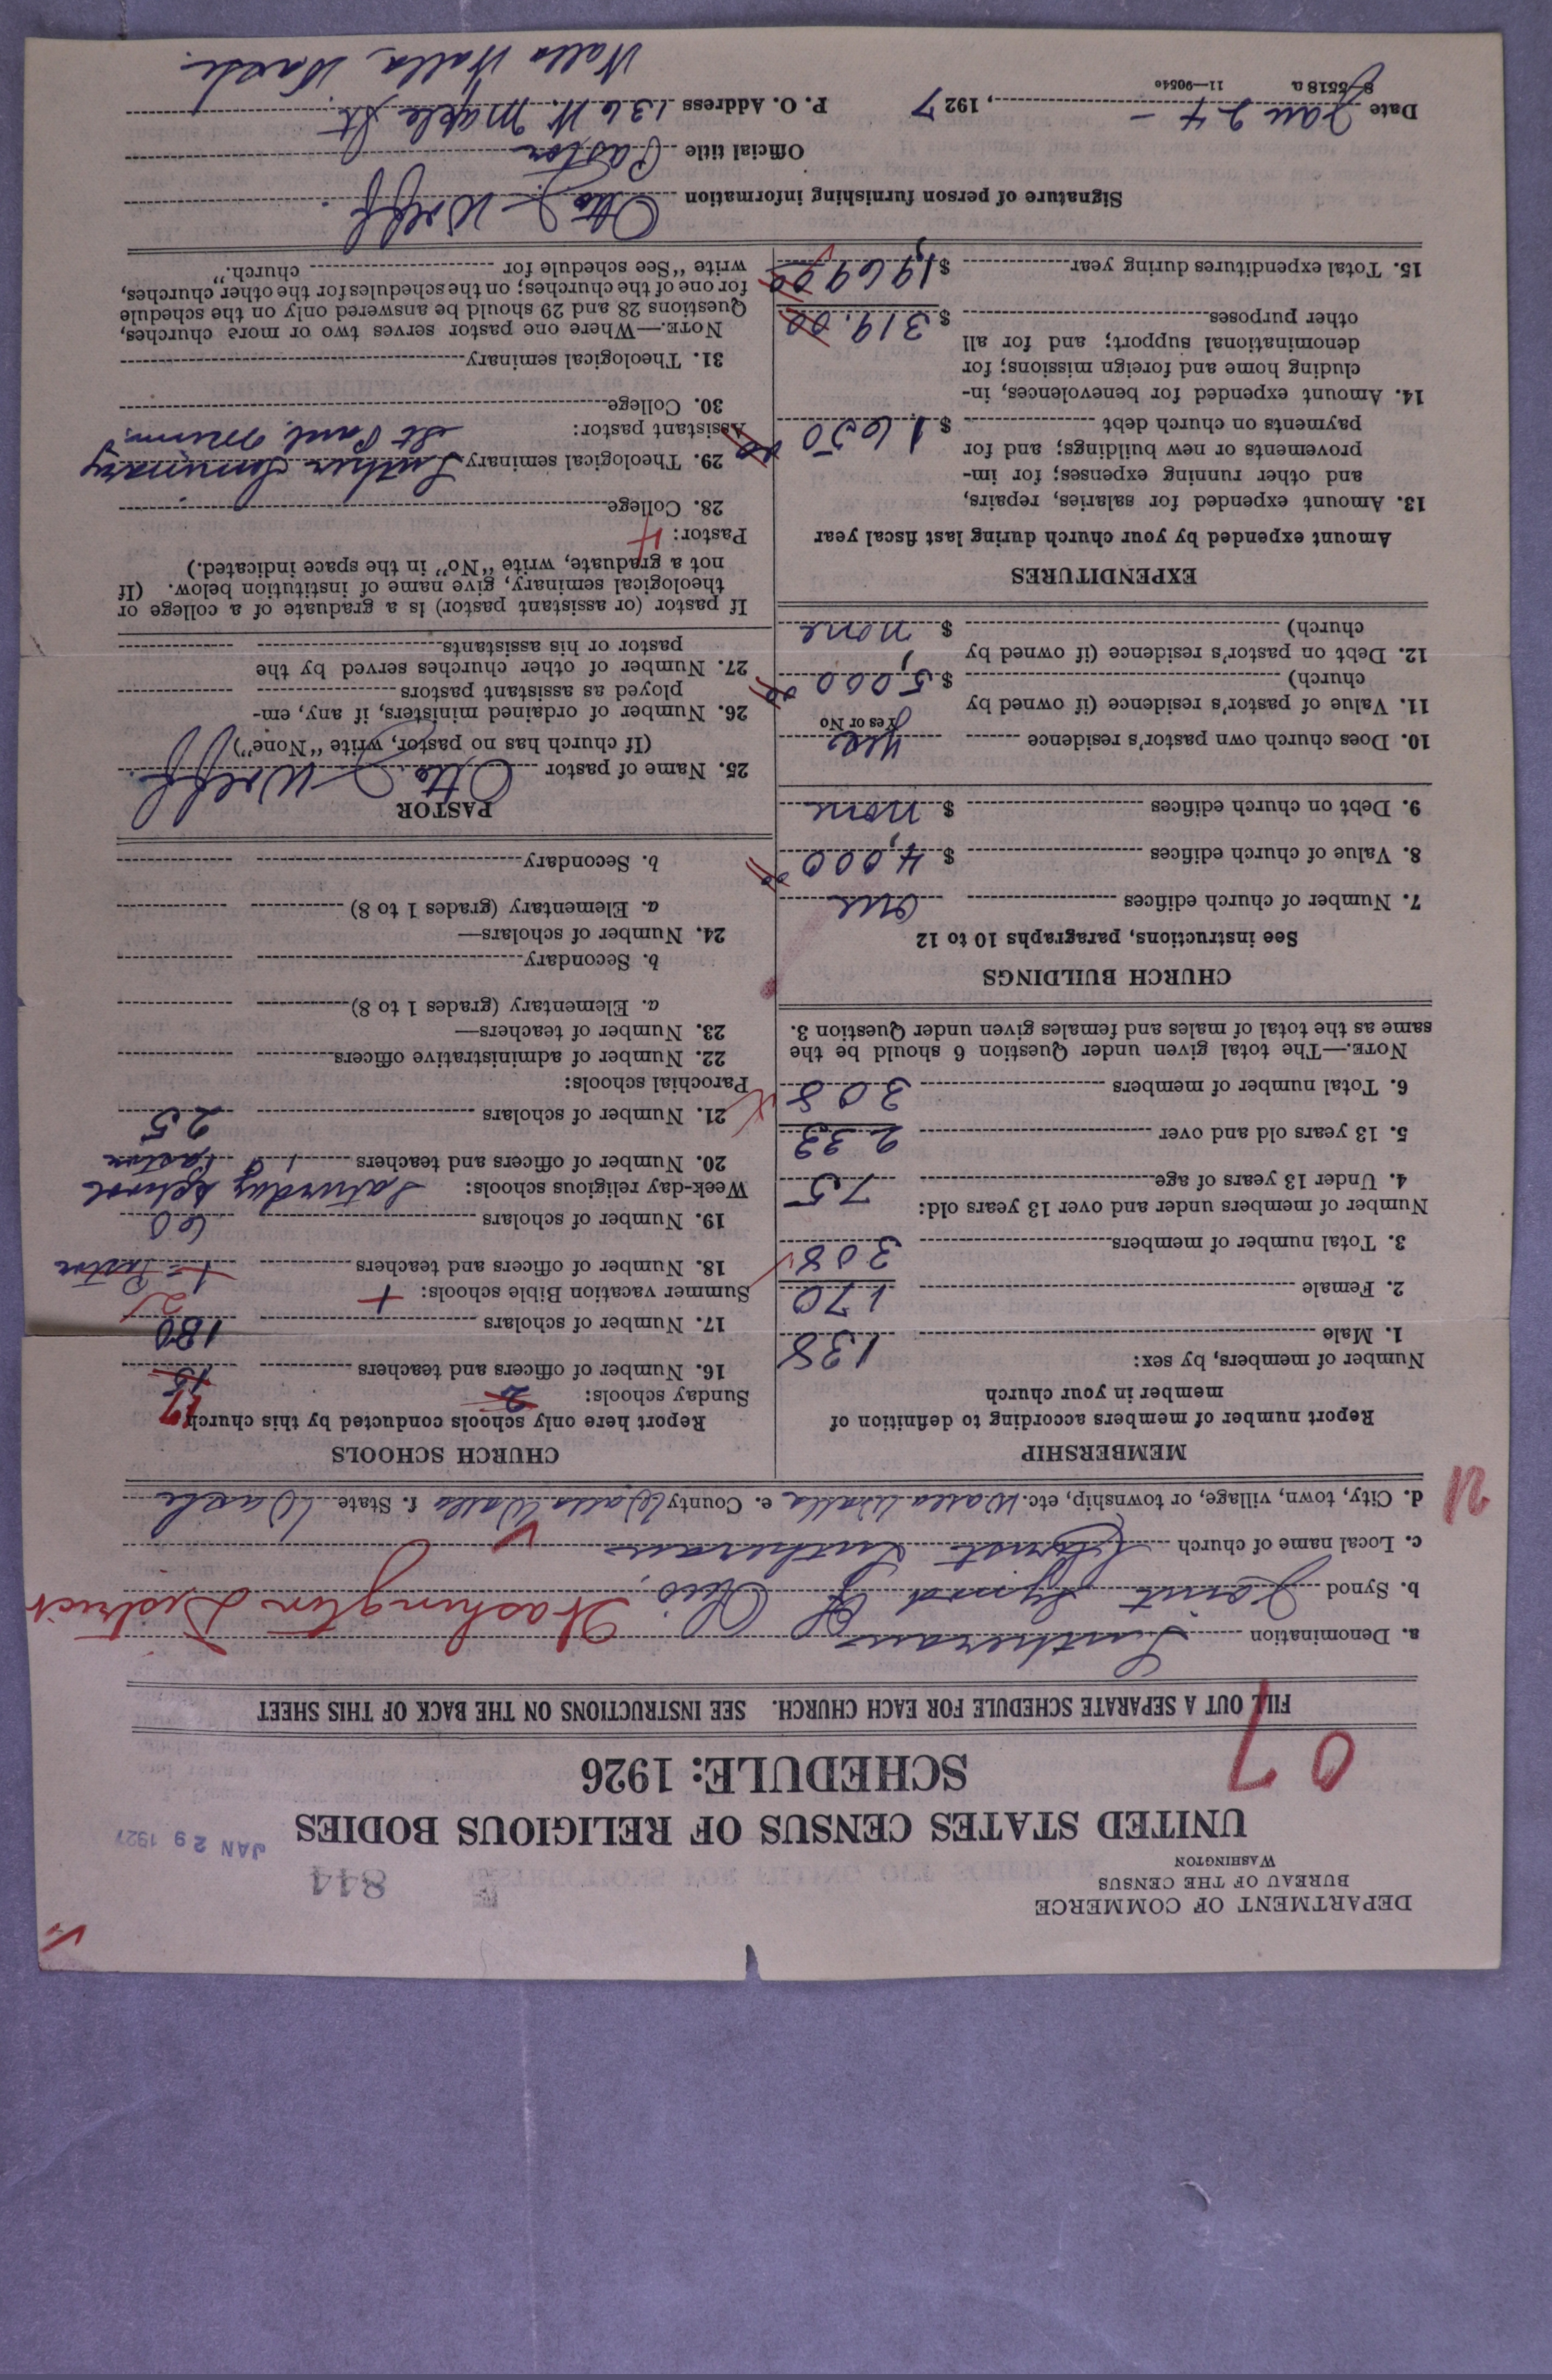 DEPARTMENT OF COMMERCE
BUREAU OF THE CENSUS
WASHINGTON
844
JAN 29 1927
UNITED STATES CENSUS OF RELIGIOUS BODIES
SCHEDULE: 1926
07
FILL OUT A SEPARATE SCHEDULE FOR EACH CHURCH. SEE INSTRUCTIONS ON THE BACK OF THIS SHEET
a. Denomination Lutheran
b. Synod Joint Synod of Ohio. Washington District
c. Local name of church Christ Lutheran
d. City, town, village, or township, etc. Walla Walla e. County Walla Walla f. State Wash
MEMBERSHIP
Report number of members according to definition of
member in your church
Number of members, by sex:
1. Male 138
2. Female 170
3. Total number of members 308
Number of members under and over 13 years old:
4. Under 13 years of age 75
5. 13 years old and over 233
6. Total number of members 308
NOTE.—The total given under Question 6 should be the
same as the total of males and females given under Question 3.
CHURCH BUILDINGS
See instructions, paragraphs 10 to 12
7. Number of church edifices one
8. Value of church edifices $ 4,000 00
9. Debt on church edifices $ none
10. Does church own pastor's residence yes
Yes or No
11. Value of pastor's residence (if owned by
church) $ 5,000 00
12. Debt on pastor's residence (if owned by
church) $ none
EXPENDITURES
Amount expended by your church during last fiscal year
13. Amount expended for salaries, repairs,
and other running expenses; for im-
provements or new buildings; and for
payments on church debt $ 1650 00
14. Amount expended for benevolences, in-
cluding home and foreign missions; for
denominational support; and for all
other purposes $ 319.00
15. Total expenditures during year $ 1,969 00
CHURCH SCHOOLS
Report here only schools conducted by this church
Sunday schools: 2
17
16. Number of officers and teachers 15
17. Number of scholars 180
Summer vacation Bible schools:
18. Number of officers and teachers 1 - Pastor
19. Number of scholars 60
Week-day religious schools: Saturday School
20. Number of officers and teachers 1 Pastor
21. Number of scholars 25
Parochial schools:
22. Number of administrative officers
23. Number of teachers—
a. Elementary (grades 1 to 8)
b. Secondary
24. Number of scholars—
a. Elementary (grades 1 to 8)
b. Secondary
PASTOR
25. Name of pastor Otto J. Wolff
(If church has no pastor, write "None")
26. Number of ordained ministers, if any, em-
ployed as assistant pastors
27. Number of other churches served by the
pastor or his assistants
If pastor (or assistant pastor) is a graduate of a college or
theological seminary, give name of institution below. (If
not a graduate, write "No" in the space indicated.)
Pastor: 4
28. College
29. Theological seminary Luther Seminary
St Paul, Minn.
Assistant pastor:
30. College
31. Theological seminary
NOTE.—Where one pastor serves two or more churches,
Questions 28 and 29 should be answered only on the schedule
for one of the churches; on the schedules for the other churches,
write "See schedule for church."
Signature of person furnishing information Otto J. Wolff.
Official title Pastor
Date Jan 24 -, 1927 P. O. Address 136 W. Maple St.
Walla Walla, Wash.
8-5518 a 11—9054c